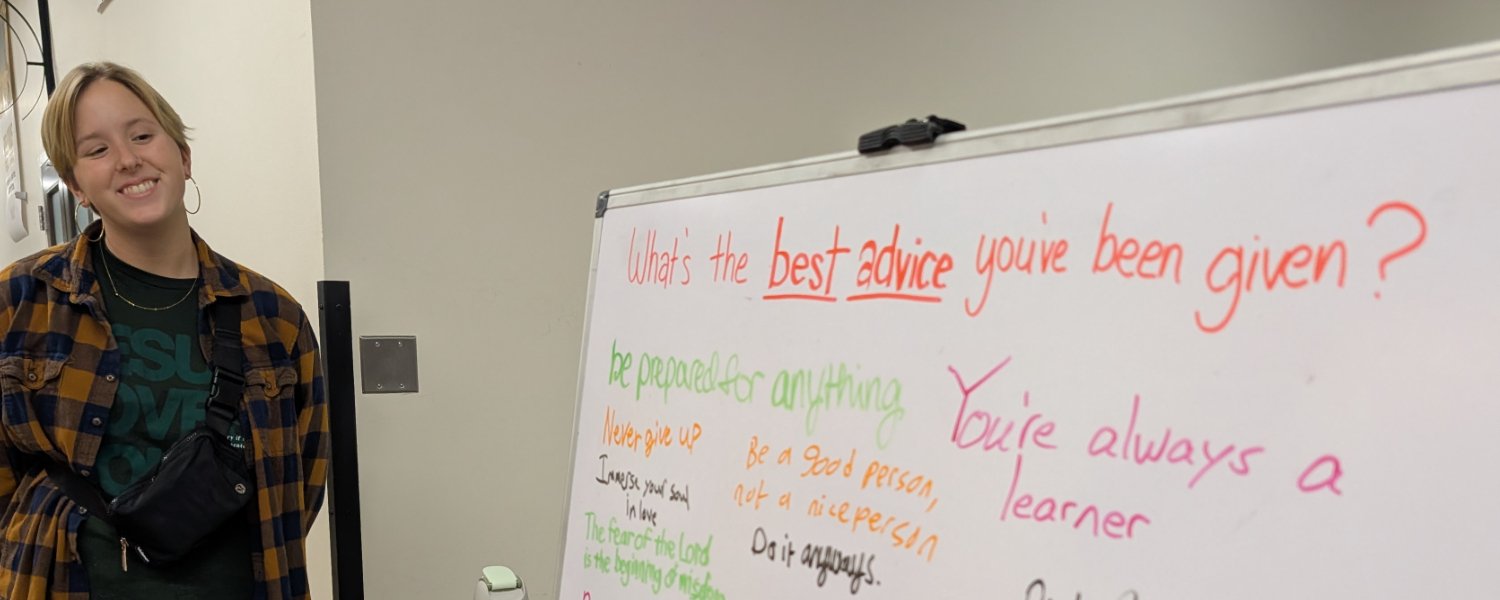 What's the best advice you've been given?
be prepared for anything
Never give up
Immerse your soul
in love
The fear of the Lord
is the beginning of wisdom
Be a good person,
not a nice person
Do it anyways.
You're always a
learner
ESU
OVE